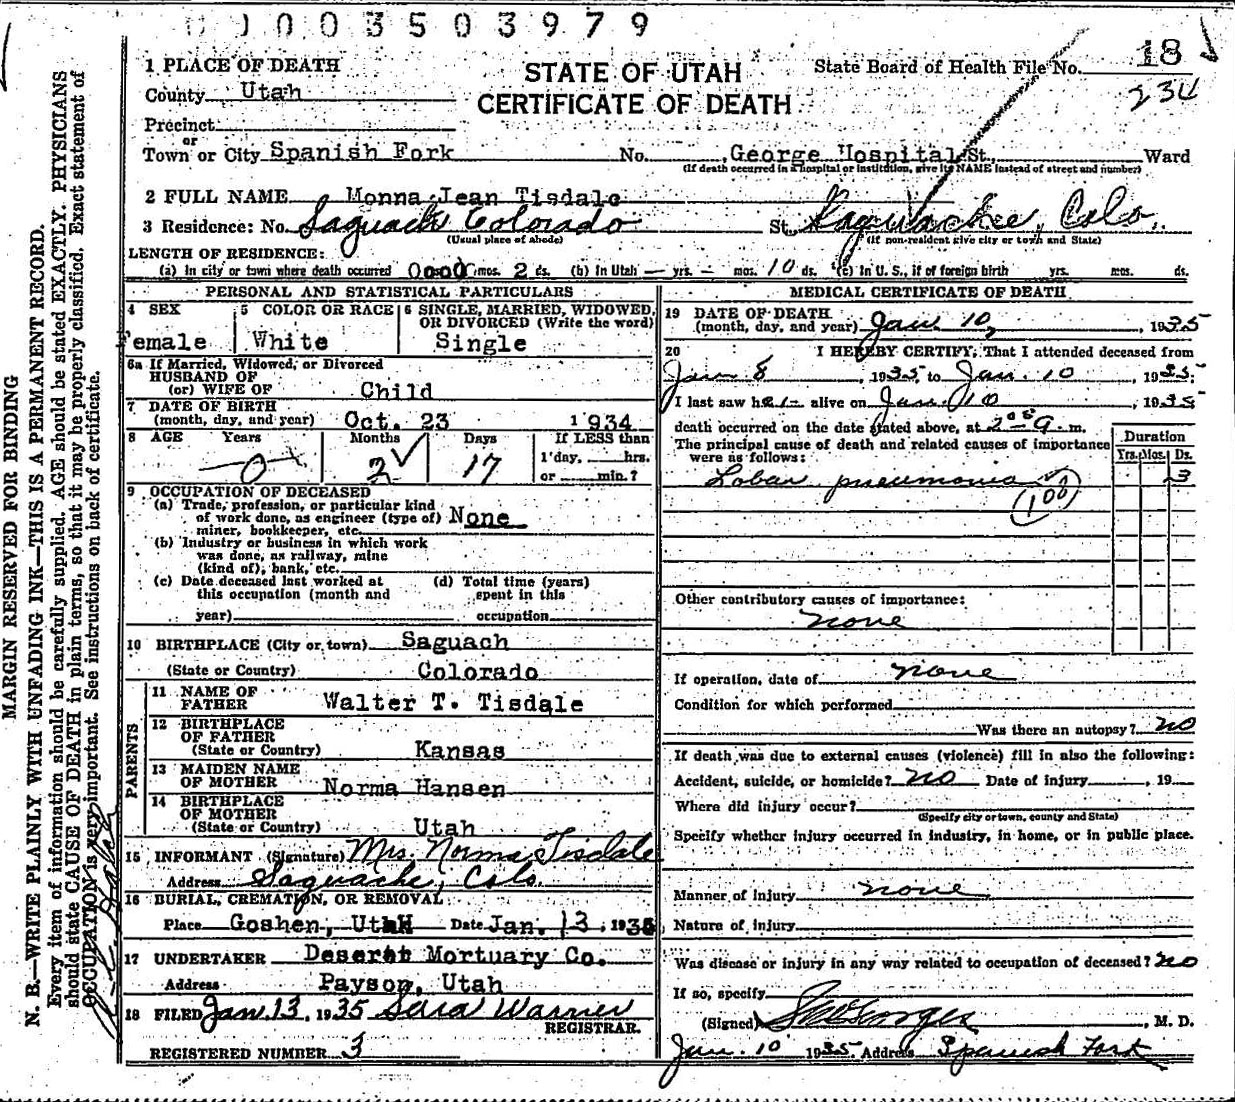 0100350 3979
1 PLACE OF DEATH
STATE OF UTAH
CERTIFICATE OF DEATH
State Board of Health File No. 18
234
County Utah
Precinct
or
Town or City Spanish Fork No. , George Hospital St., Ward
(If death occurred in a hospital or institution, give its NAME instead of street and number)
2 FULL NAME Monna Jean Tisdale
3 Residence: No. Saguach Colorado St. Saguache, Colo.
(Usual place of abode) (If non-resident give city or town and State)
LENGTH OF RESIDENCE:
(a) In city or town where death occurred mos. 2 ds. (b) In Utah — yrs. — mos. 10 ds. (c) In U. S., if of foreign birth yrs. mos. ds.
PERSONAL AND STATISTICAL PARTICULARS
4 SEX
Female
5 COLOR OR RACE
White
6 SINGLE, MARRIED, WIDOWED, OR DIVORCED (Write the word)
Single
6a If Married, Widowed, or Divorced
HUSBAND OF
(or) WIFE OF Child
7 DATE OF BIRTH
(month, day, and year) Oct. 23 1934
8 AGE Years Months Days If LESS than
0 2 17 1 day, hrs.
or min.?
9 OCCUPATION OF DECEASED
(a) Trade, profession, or particular kind
of work done, as engineer (type of) None
miner, bookkeeper, etc.
(b) Industry or business in which work
was done, as railway, mine
(kind of), bank, etc.
(c) Date deceased last worked at
this occupation (month and
year)
(d) Total time (years)
spent in this
occupation
10 BIRTHPLACE (City or town) Saguach
(State or Country) Colorado
PARENTS
11 NAME OF
FATHER Walter T. Tisdale
12 BIRTHPLACE
OF FATHER
(State or Country) Kansas
13 MAIDEN NAME
OF MOTHER Norma Hansen
14 BIRTHPLACE
OF MOTHER
(State or Country) Utah
15 INFORMANT (Signature) Mrs. Norma Tisdale
Address Saguache, Colo.
16 BURIAL, CREMATION, OR REMOVAL
Place Goshen, UtaH Date Jan. 13, 1935
17 UNDERTAKER Deseret Mortuary Co.
Address Payson, Utah
18 FILED Jan. 13, 1935 Sara Warner
REGISTRAR.
REGISTERED NUMBER 3
MEDICAL CERTIFICATE OF DEATH
19 DATE OF DEATH
(month, day, and year) Jan. 10, , 1935
20 I HEREBY CERTIFY, That I attended deceased from
Jan 8 , 1935, to Jan. 10 , 1935;
I last saw her alive on Jan. 10 , 1935
death occurred on the date stated above, at m.
The principal cause of death and related causes of importance
were as follows:
Duration
Yrs. Mos. Ds.
Lobar pneumonia 3
100
Other contributory causes of importance:
none
If operation, date of none
Condition for which performed
Was there an autopsy? no
If death was due to external causes (violence) fill in also the following:
Accident, suicide, or homicide? no Date of injury , 19
Where did injury occur?
(Specify city or town, county and State)
Specify whether injury occurred in industry, in home, or in public place.
Manner of injury none
Nature of injury
Was disease or injury in any way related to occupation of deceased? no
If so, specify
(Signed) , M. D.
Jan. 10 1935 Address Spanish Fork
MARGIN RESERVED FOR BINDING
N. B.—WRITE PLAINLY WITH UNFADING INK—THIS IS A PERMANENT RECORD.
Every item of information should be carefully supplied. AGE should be stated EXACTLY. PHYSICIANS
should state CAUSE OF DEATH in plain terms, so that it may be properly classified. Exact statement of
OCCUPATION is very important. See instructions on back of certificate.